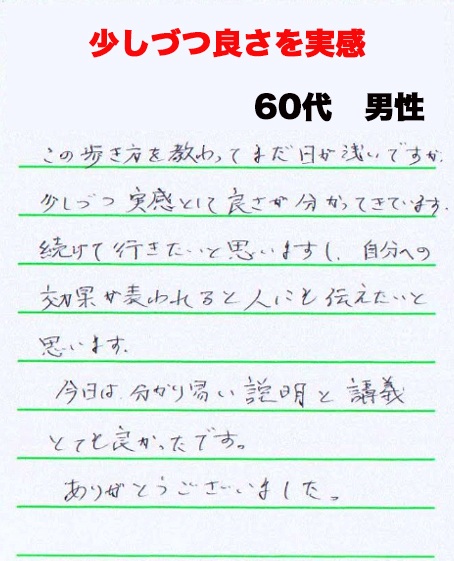 少しづつ良さを実感
60代　男性
この歩き方を教わってまだ日が浅いですが、
少しづつ実感として良さが分かってきています。
続けて行きたいと思いますし、自分への
効果が表われると人にも伝えたいと
思います。
今日は、分かり易い説明と講義
とても良かったです。
ありがとうございました。